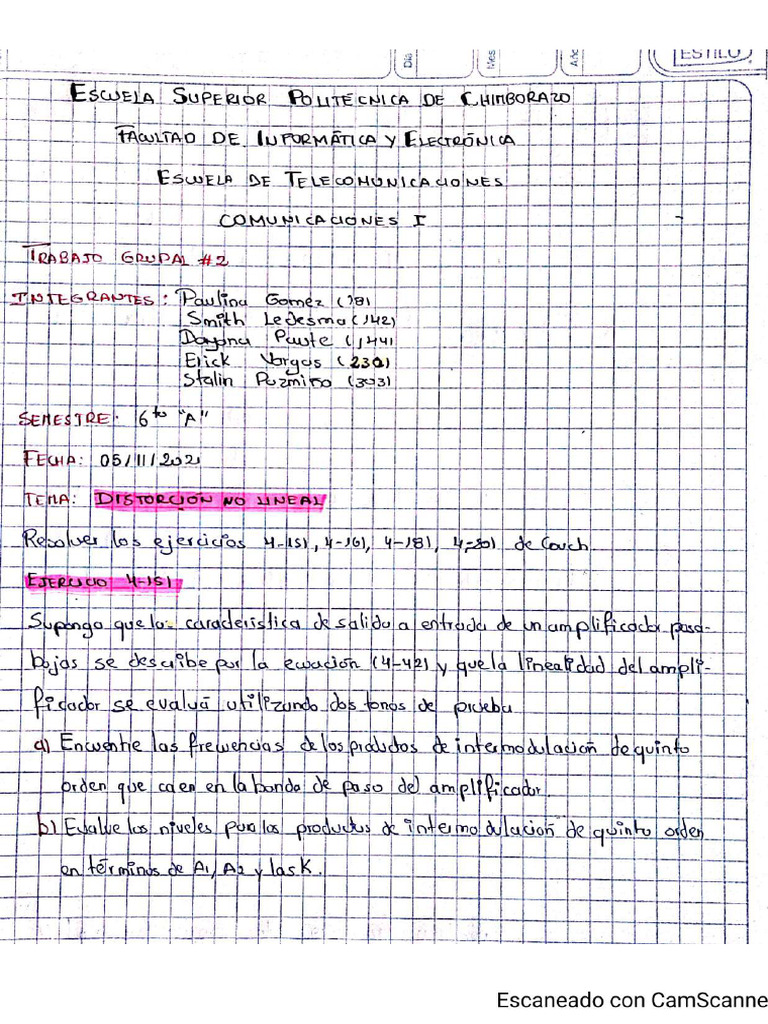 Día
Mes
Año
ESTILO
ESCUELA SUPERIOR POLITÉCNICA DE CHIMBORAZO
FACULTAD DE INFORMÁTICA Y ELECTRÓNICA
ESCUELA DE TELECOMUNICACIONES
COMUNICACIONES I
TRABAJO GRUPAL #2
INTEGRANTES: Paulina Gomez (181
Smith Ledesma (142)
Dayana Paute (1441
Erick Vargas (230)
Stalin Pazmiño (303)
SEMESTRE: 6to "A"
FECHA: 05/11/2021
TEMA: DISTORCIÓN NO LINEAL
Resolver los ejercicios 4-151, 4-161, 4-181, 4-201 de Couch
EJERCICIO 4-151
Suponga que la característica de salida a entrada de un amplificador paso-
bajas se describe por la ecuación (4-42) y que la linealidad del ampli-
ficador se evalua utilizando dos tonos de prueba
a) Encuentre las frecuencias de los productos de intermodulación de quinto
orden que caen en la banda de paso del amplificador.
b) Evalue los niveles para los productos de intermodulación de quinto orden
en términos de A1, A2 y las K.
Escaneado con CamScanne